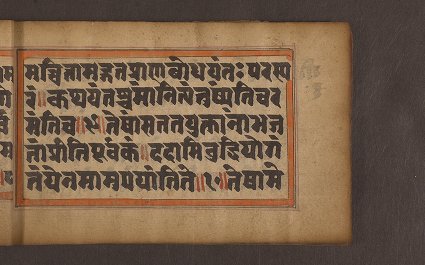 मच्चित्तामद्गतप्राणबोधयंतः परस्प
रं॥कथयंतश्चमांनित्यंतुष्यंतिचर
मंतिच॥९॥तेषांसततयुक्तानांभज
तांप्रीतिपूर्वकं॥ददामिबुद्धियोगं
तंयेनमामुपयांतिते॥१०॥तेषामे